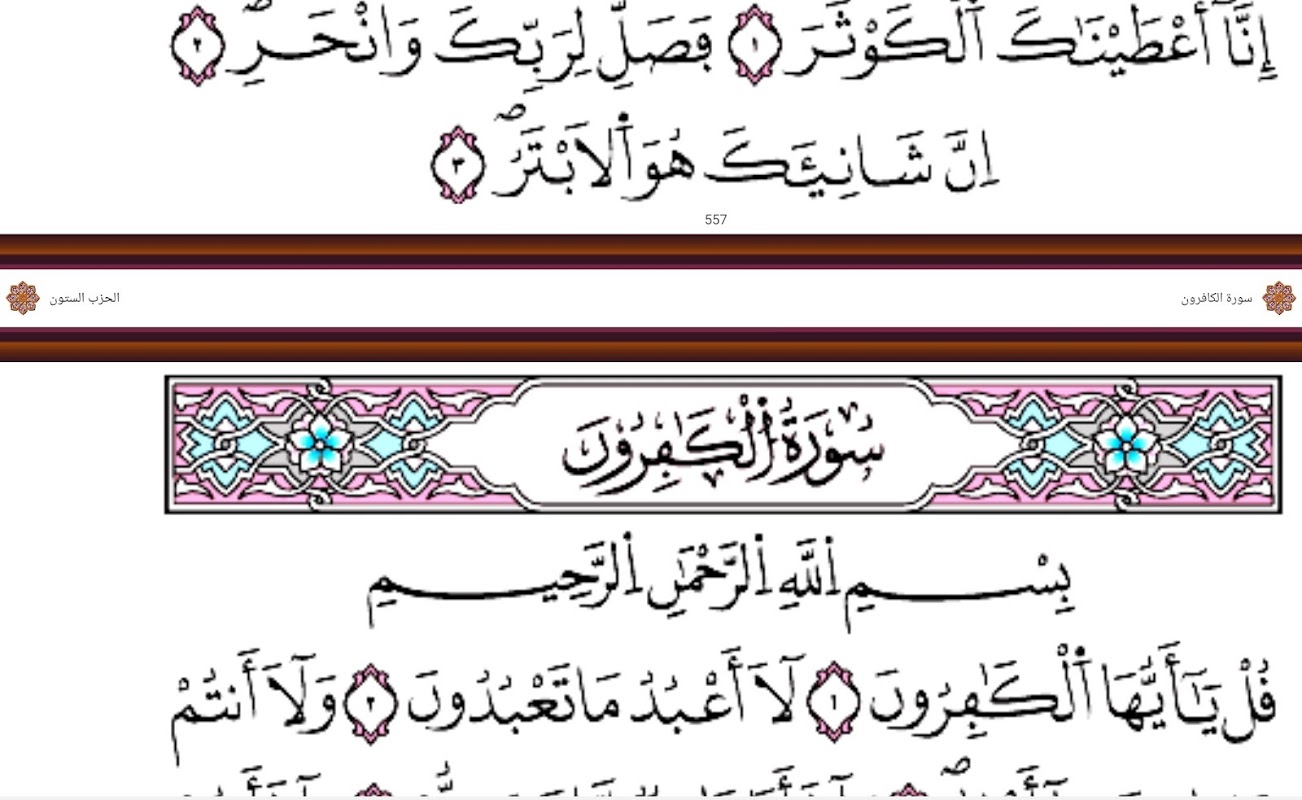 إِنَّآ أَعْطَيْنَٰكَ اَ۬لْكَوْثَرَ ١ فَصَلِّ لِرَبِّكَ وَانْحَرِۖ ٢
اِنَّ شَانِئَكَ هُوَ اَ۬لَابْتَرُۖ ٣
557
سورة الكافرون
الحزب الستون
سُورَةُ اُ۬لْكَٰفِرُونَ
بِسْمِ اِ۬للَّهِ اِ۬لرَّحْمَٰنِ اِ۬لرَّحِيمِ
قُلْ يَٰٓأَيُّهَا اَ۬لْكَٰفِرُونَ ١ لَآ أَعْبُدُ مَا تَعْبُدُونَ ٢ وَلَآ أَنتُمْ